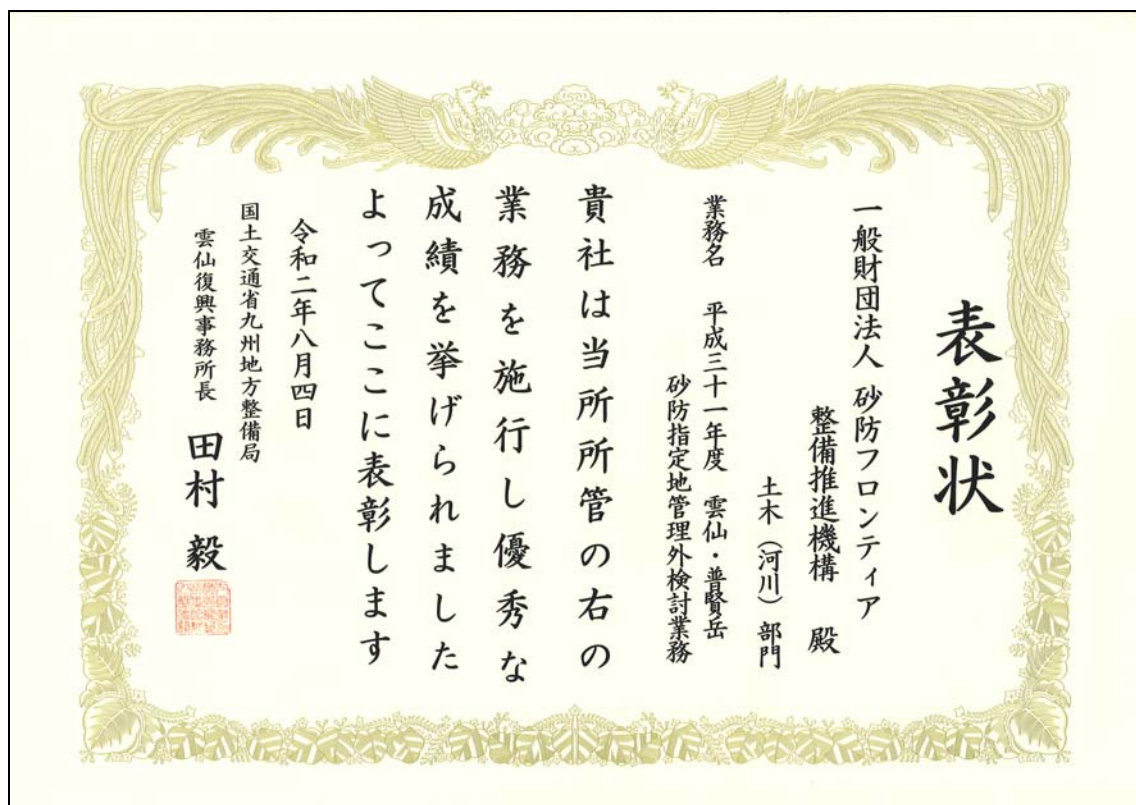 表彰状
一般財団法人 砂防フロンティア
整備推進機構 殿
土木（河川）部門
業務名 平成三十一年度 雲仙・普賢岳
砂防指定地管理外検討業務
貴社は当所所管の右の
業務を施行し優秀な
成績を挙げられました
よってここに表彰します
令和二年八月四日
国土交通省九州地方整備局
雲仙復興事務所長 田村 毅